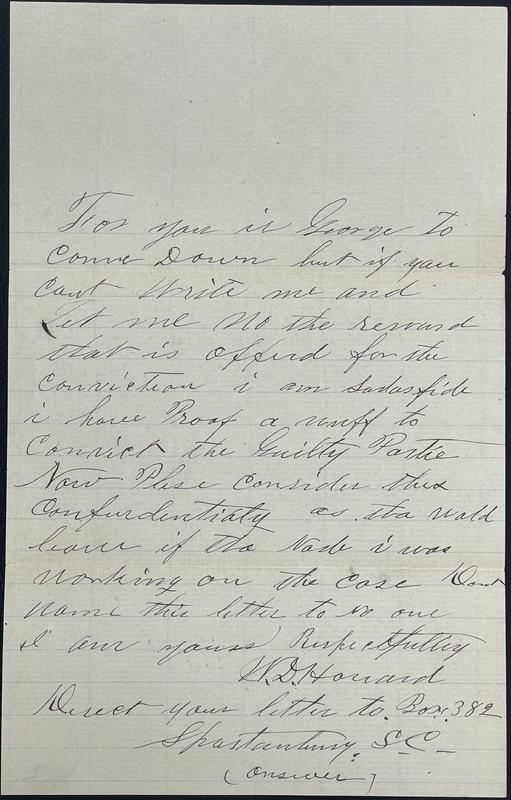 For you ir George to
Come Down but if you
cant Write me and
Let me No the reward
that is offerd for the
Conviction i am Sadasfide
i have Proof a nuff to
Convict the Guilty Partie
Now Plese consider this
Confurdentialy as tha wold
leave if tha Node i was
working on the case Dont
name this letter to no one
I am yours Respectfulley
W.D. Howard
Direct your letter to Box 382
Spartanburg, S.C.
(answer)